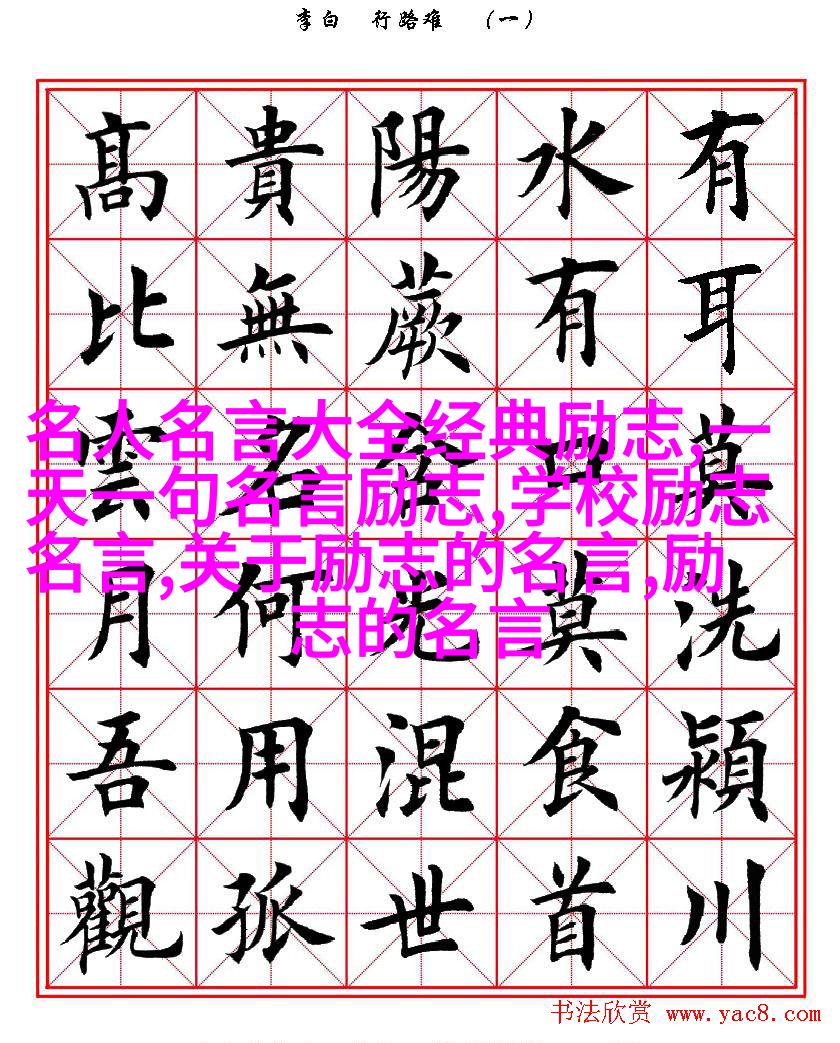 李白 行路难 （一）
有耳莫洗潁川
水有口莫食首
陽蕨含光混世
貴無名何用孤
髙比雲月吾觀
名人名言大全经典励志,一
天一句名言励志,学校励志
名言,关于励志的名言,励
志的名言
书法欣赏 www.yac8.com